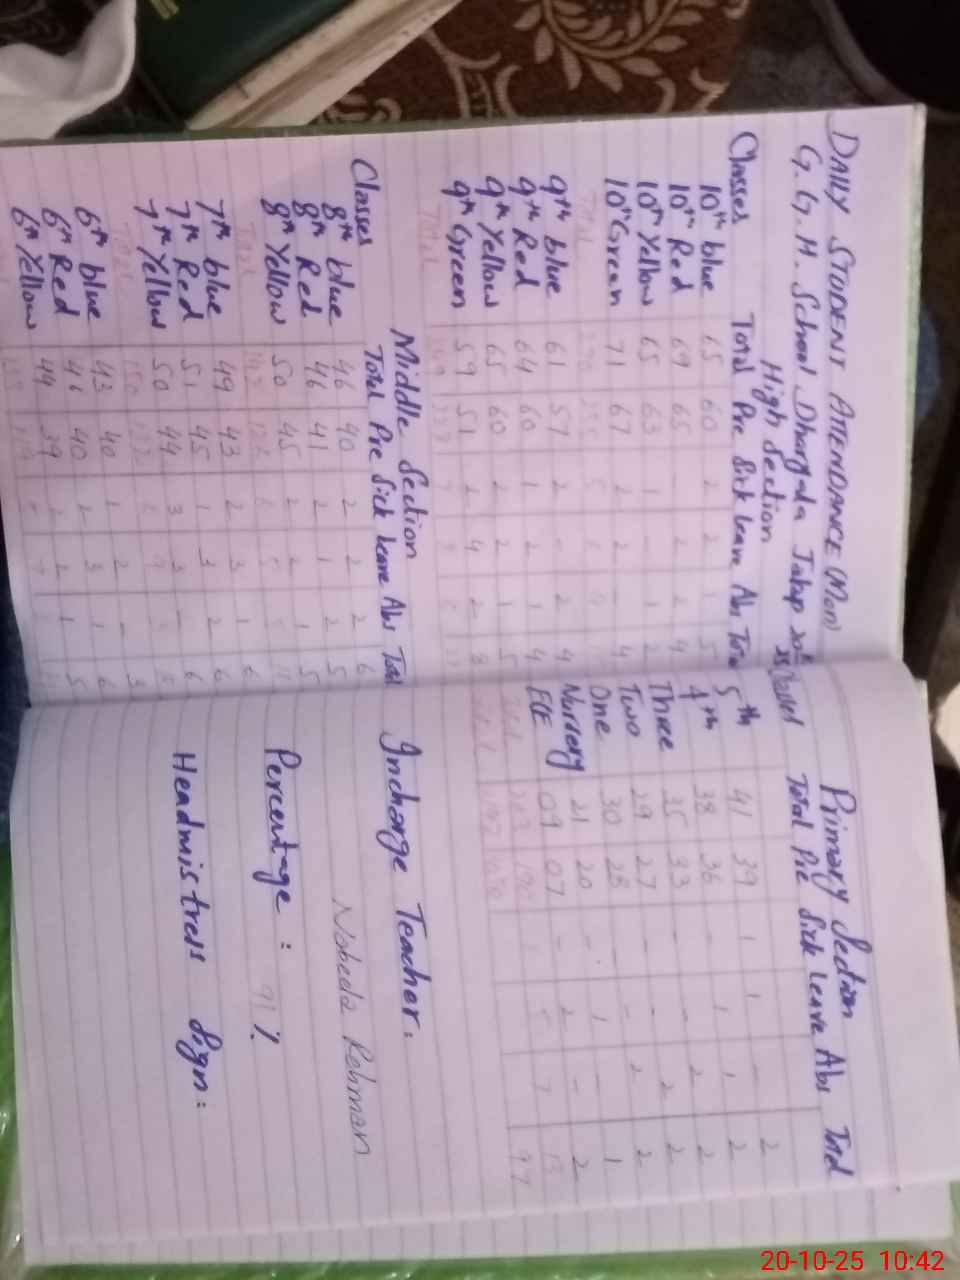 DAILY STUDENT ATTENDANCE (Mon)
G. G. H. School Dhargala
High Section
Classes Total Pre Sick leave Abs Total
10th blue 65 60 2 2 1 5
10th Red 69 65 - 2 2 4
10th Yellow 65 63 1 - 1 2
10th Green 71 67 2 2 - 4
Total 270 255 5
9th blue 61 57 2 - 2 4
9th Red 64 60 1 2 1 4
9th Yellow 65 60 2 2 1 5
9th Green 59 51 2 4 2 8
Total
Middle Section
Classes Total Pre Sick leave Abs Total
8th blue 46 40 2 2 2 6
8th Red 46 41 2 1 2 5
8th Yellow 50 45 2 2 1 5
Total 142 126 6 5 5
7th blue 49 43 2 3 1 6
7th Red 51 45 1 3 2 6
7th Yellow 50 44 3 3 - 6
Total 150 132
6th blue 43 40 1 2 - 3
6th Red 46 40 2 3 1 6
6th Yellow 44 39 2 2 1 5
Primary Section
Classes Total Pre Sick leave Abs Total
5th 41 39 1 1 - 2
4th 38 36 - 1 1 2
Three 35 33 - - 2 2
Two 29 27 - - 2 2
One 30 28 - - 2 2
Nursery 21 20 - 1 - 1
ECE 09 07 - 2 - 2
Total 203 190 1 5 7 13
Incharge Teacher:
Nobeela Rehman
Percentage : 91 %
Headmistress Sign:
20-10-25 10:42